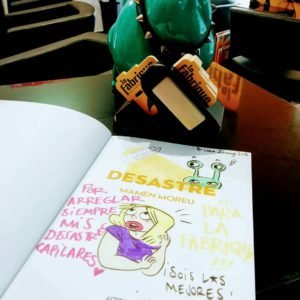 la
Fabrique
la
Fabrique
DESASTRE
MAMEN MOREU
POR
ARREGLAR
SIEMPRE
MIS
DESASTRES
CAPILARES
PARA
LA
FABRIQUE
¡SOIS L★S
MEJORES!